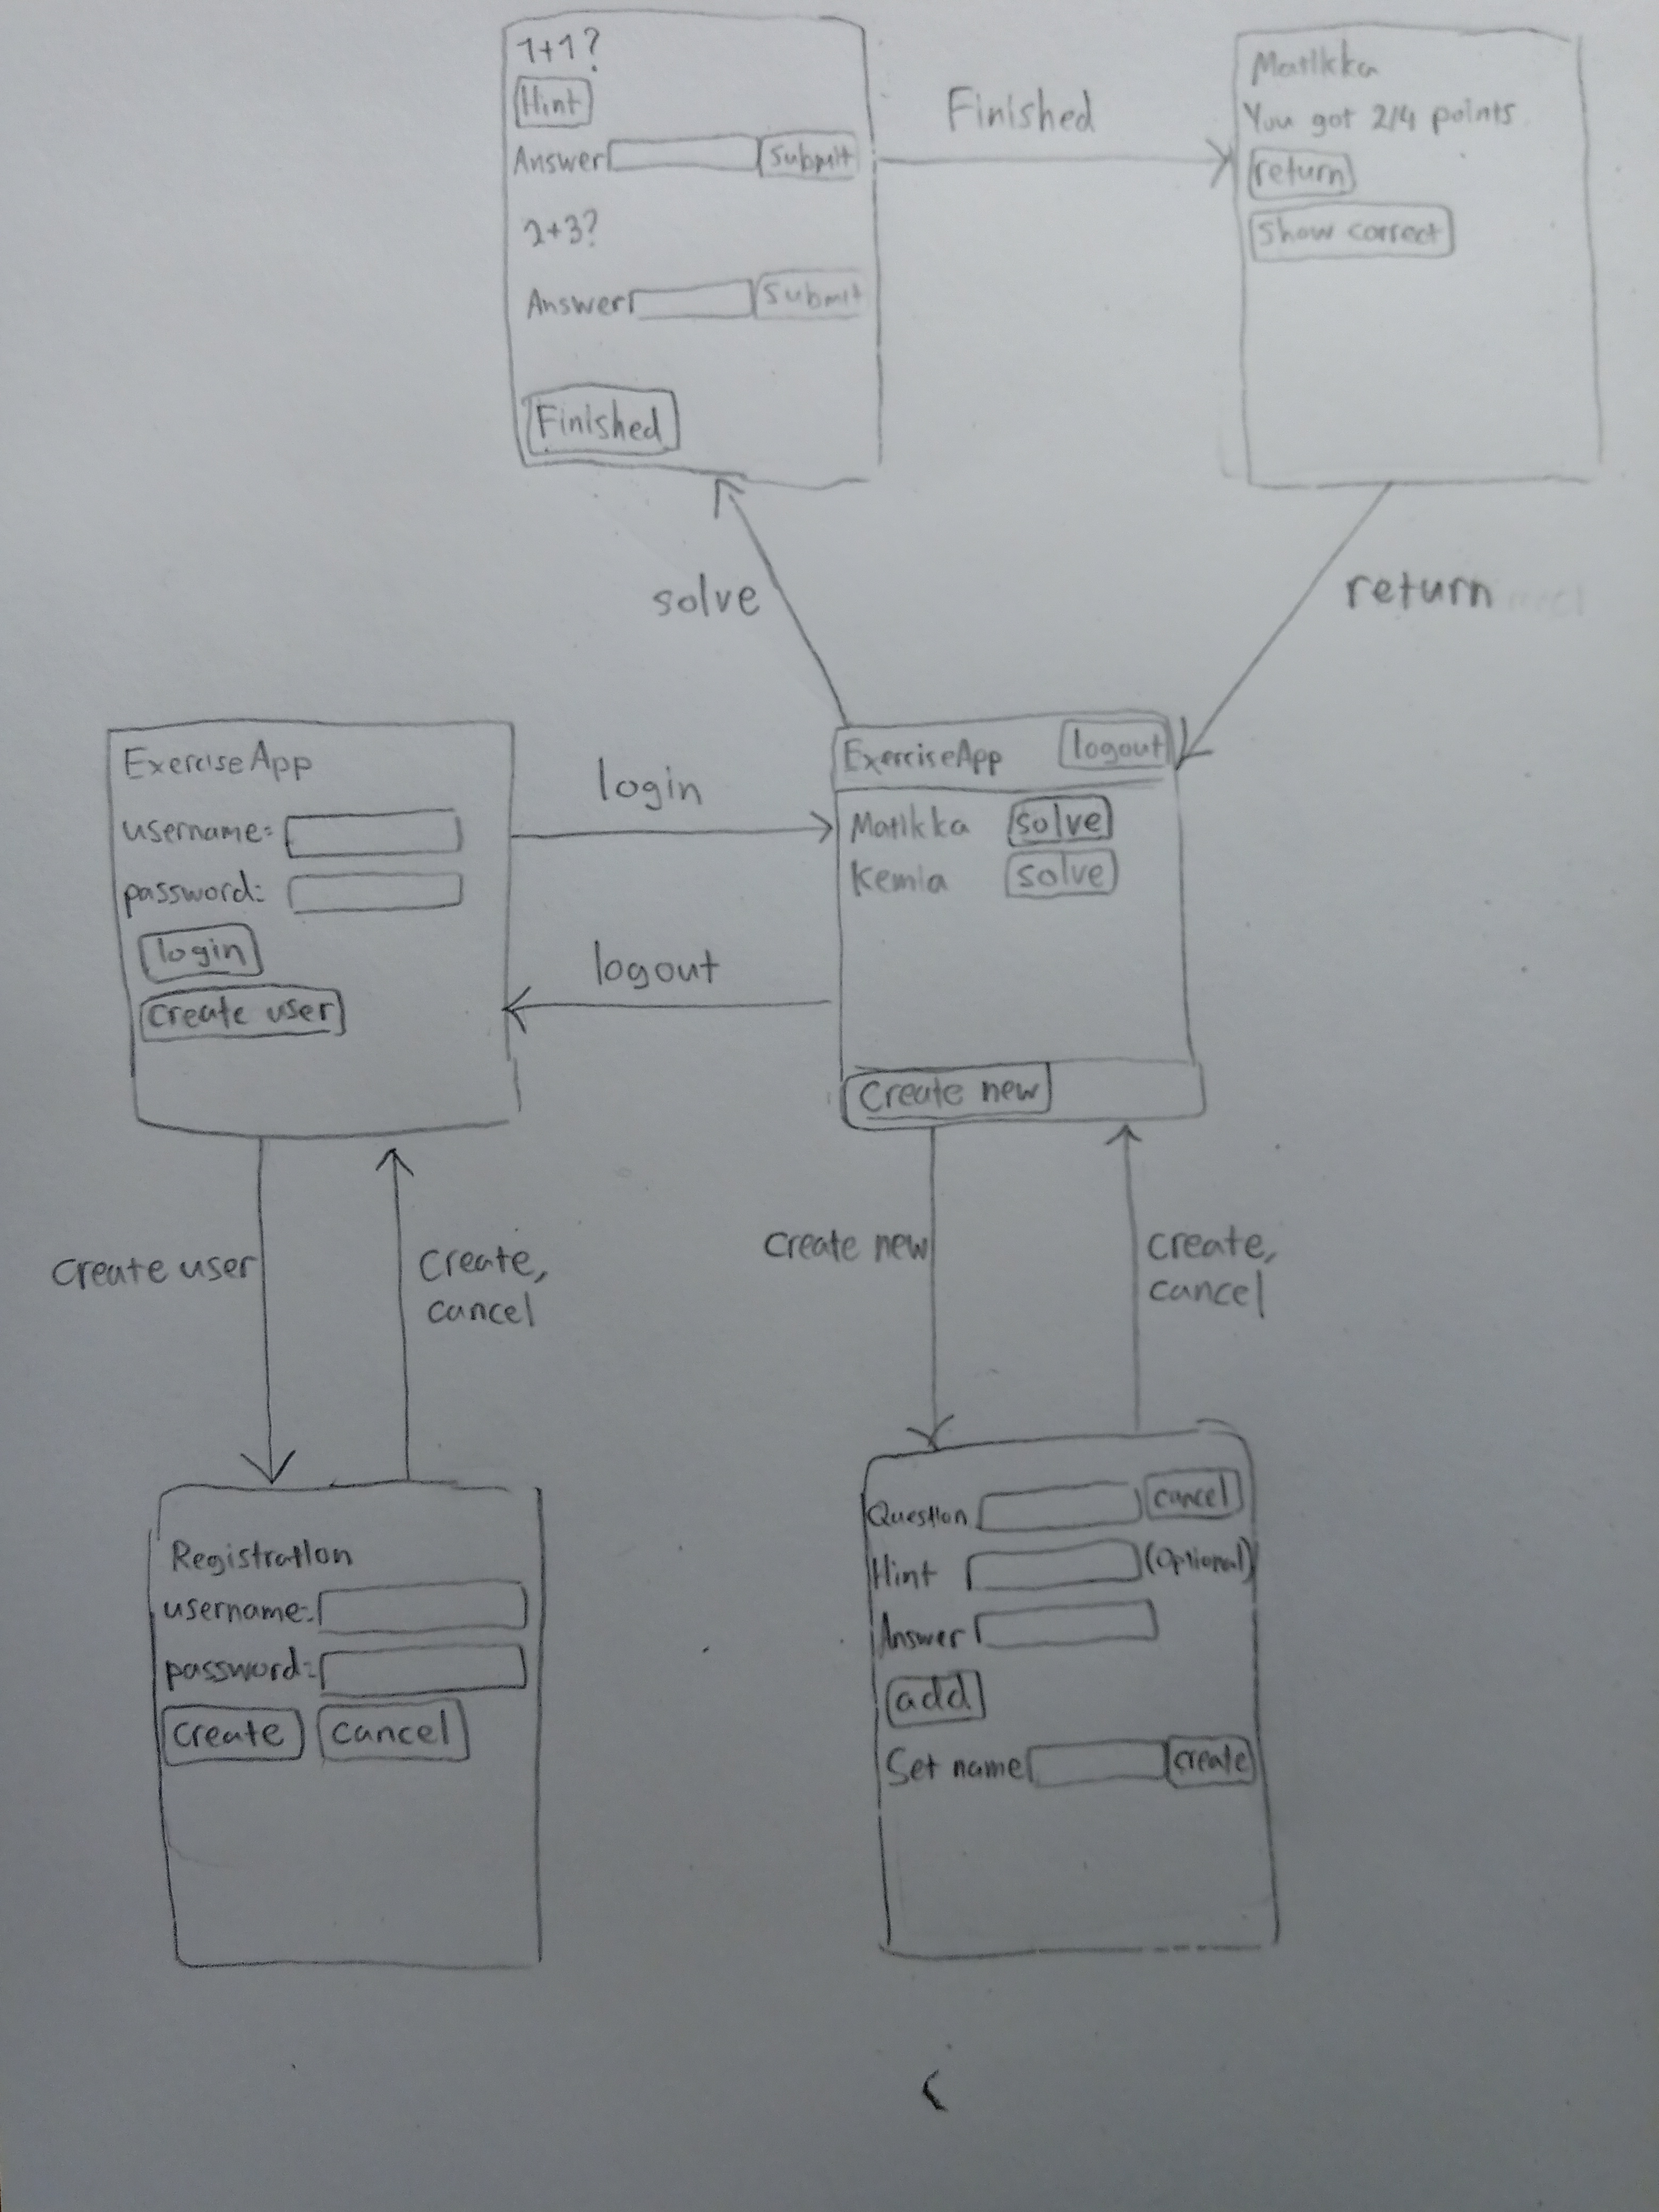 1+1?
Hint
Answer Submit
2+3?
Answer Submit
Finished
Finished
Matikka
You got 2/4 points.
return
Show correct
solve
return
ExerciseApp
username:
password:
login
create user
login
logout
ExerciseApp logout
Matikka solve
Kemia solve
Create new
create user
create,
cancel
create new
create,
cancel
Registration
username:
password:
create cancel
Question cancel
Hint (optional)
Answer
add
Set name create